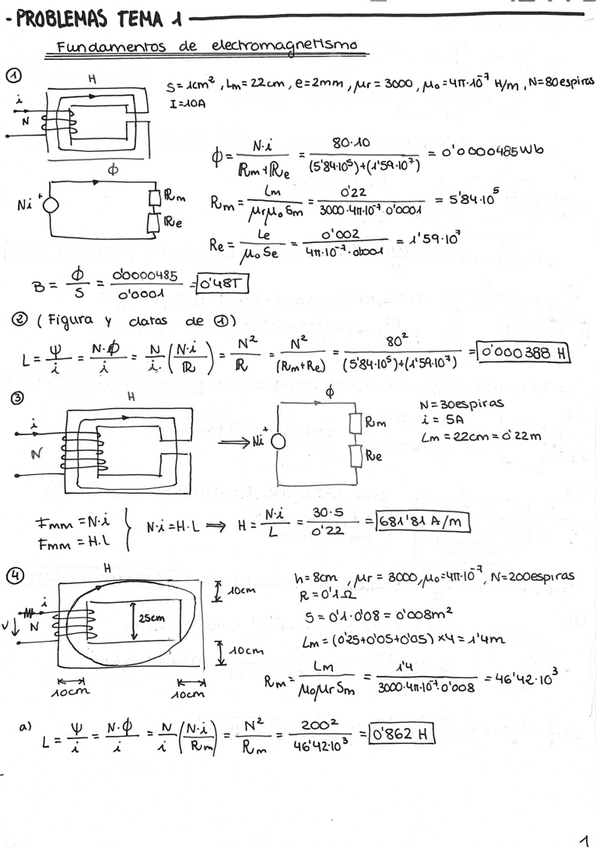 - PROBLEMAS TEMA 1
Fundamentos de electromagnetismo
① H
i
N
S=1cm², Lm=22cm, e=2mm, μr=3000, μ₀=4π·10⁻⁷ H/m, N=80espiras
I=10A
ϕ = N·i / (Rm+Re) = 80·10 / ((5'84·10⁵)+(1'59·10⁷)) = 0'0000485Wb
ϕ
Ni
+
Rm
Re
Rm = Lm / (μrμ₀Sm) = 0'22 / (3000·4π·10⁻⁷·0'0001) = 5'84·10⁵
Re = Le / (μ₀Se) = 0'002 / (4π·10⁻⁷·0'0001) = 1'59·10⁷
B = ϕ / S = 0'0000485 / 0'0001 = 0'48T
② (Figura y datos de ①)
L = Ψ / i = N·ϕ / i = N / i (N·i / R) = N² / R = N² / (Rm+Re) = 80² / ((5'84·10⁵)+(1'59·10⁷)) = 0'000388 H
③ H
i
N
⟹ Ni
+
ϕ
Rm
Re
N=30espiras
i = 5A
Lm=22cm=0'22m
Fmm = N·i
Fmm = H·L
N·i=H·L ⟹ H = N·i / L = 30·5 / 0'22 = 681'81 A/m
④ H
i
V
N
25cm
10cm
10cm
10cm
10cm
h=8cm, μr=3000, μ₀=4π·10⁻⁷, N=200espiras
R=0'1Ω
S=0'1·0'08=0'008m²
Lm=(0'25+0'05+0'05)×4=1'4m
Rm = Lm / (μ₀μrSm) = 1'4 / (3000·4π·10⁻⁷·0'008) = 46'42·10³
a) L = Ψ / i = N·ϕ / i = N / i (N·i / Rm) = N² / Rm = 200² / 46'42·10³ = 0'862 H
1